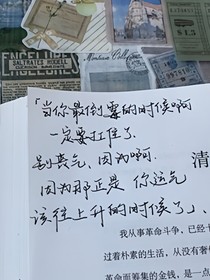 ENGELURES
SALTRATES RODELL
$1.5
「当你最倒霉的时候啊
一定要扛住了
别丧气，因为啊，
因为那正是 你运气
该往上升的时候了」、
清
我从事革命斗争，已经十
过着朴素的生活，从没有奢
革命而筹集的金钱，是一点